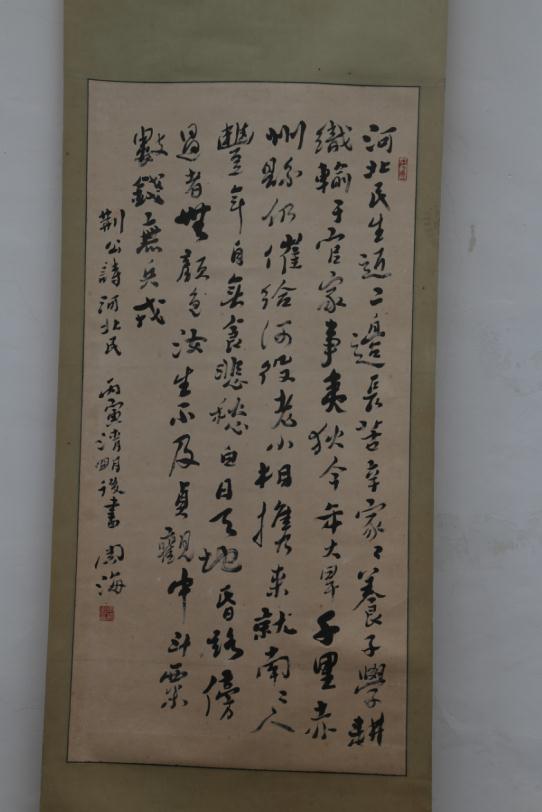 河北民生近二邊長苦辛家〻養子學耕
織輸于官家事夷狄今年大旱千里赤
州縣仍催給河役老小相攜來就南〻人
豐年自無食悲愁白日天地昏路傍
過者無顏色汝生不及貞觀中斗粟
數錢無兵戎
荆公詩河北民 丙寅清明後書 周海